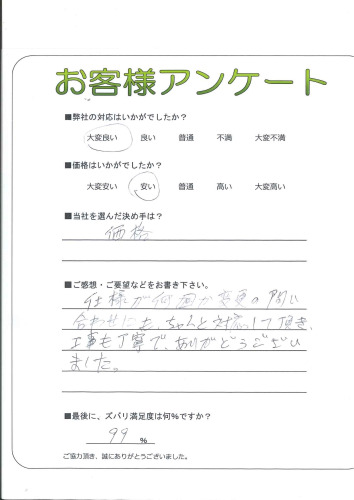 お客様アンケート
■弊社の対応はいかがでしたか?
大変良い 良い 普通 不満 大変不満
■価格はいかがでしたか?
大変安い 安い 普通 高い 大変高い
■当社を選んだ決め手は?
価格
■ご感想・ご要望などをお書き下さい。
仕様が何回か変更の問い
合わせにも、ちゃんと対応して頂き、
工事も丁寧で、ありがとうござい
ました。
■最後に、ズバリ満足度は何%ですか?
99 %
ご協力頂き、誠にありがとうございました。